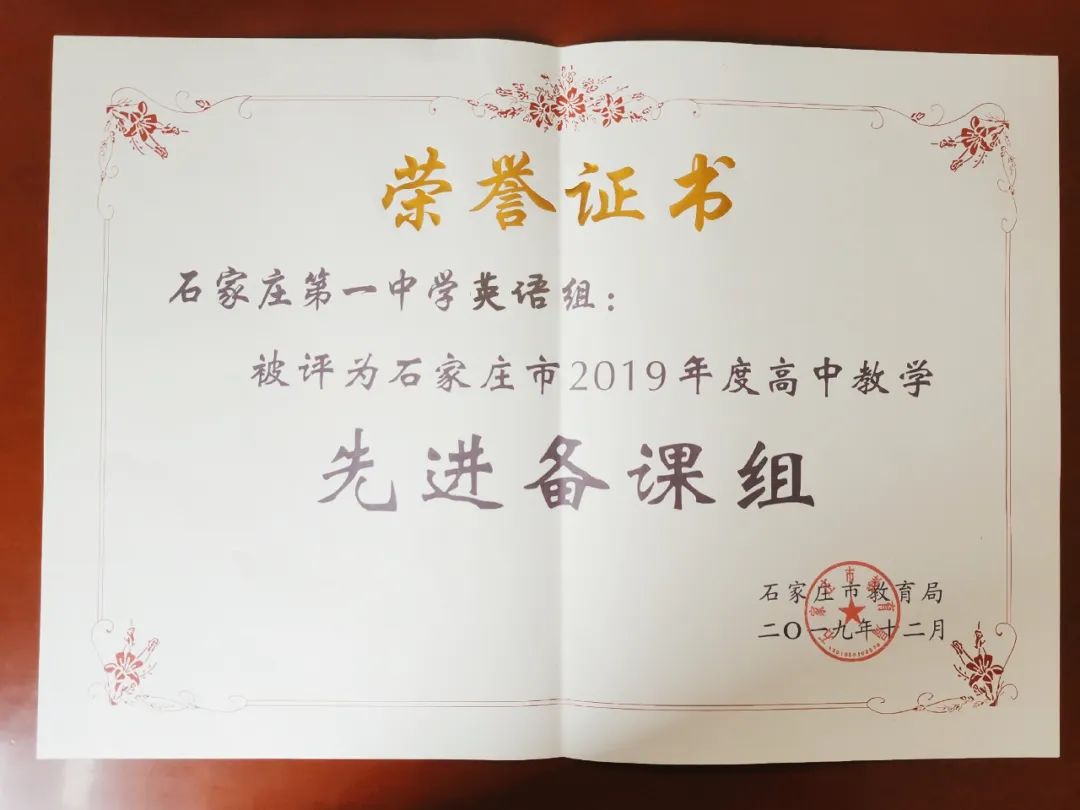 荣誉证书
石家庄第一中学英语组：
被评为石家庄市2019年度高中教学
先进备课组
石家庄市教育局
二〇一九年十二月